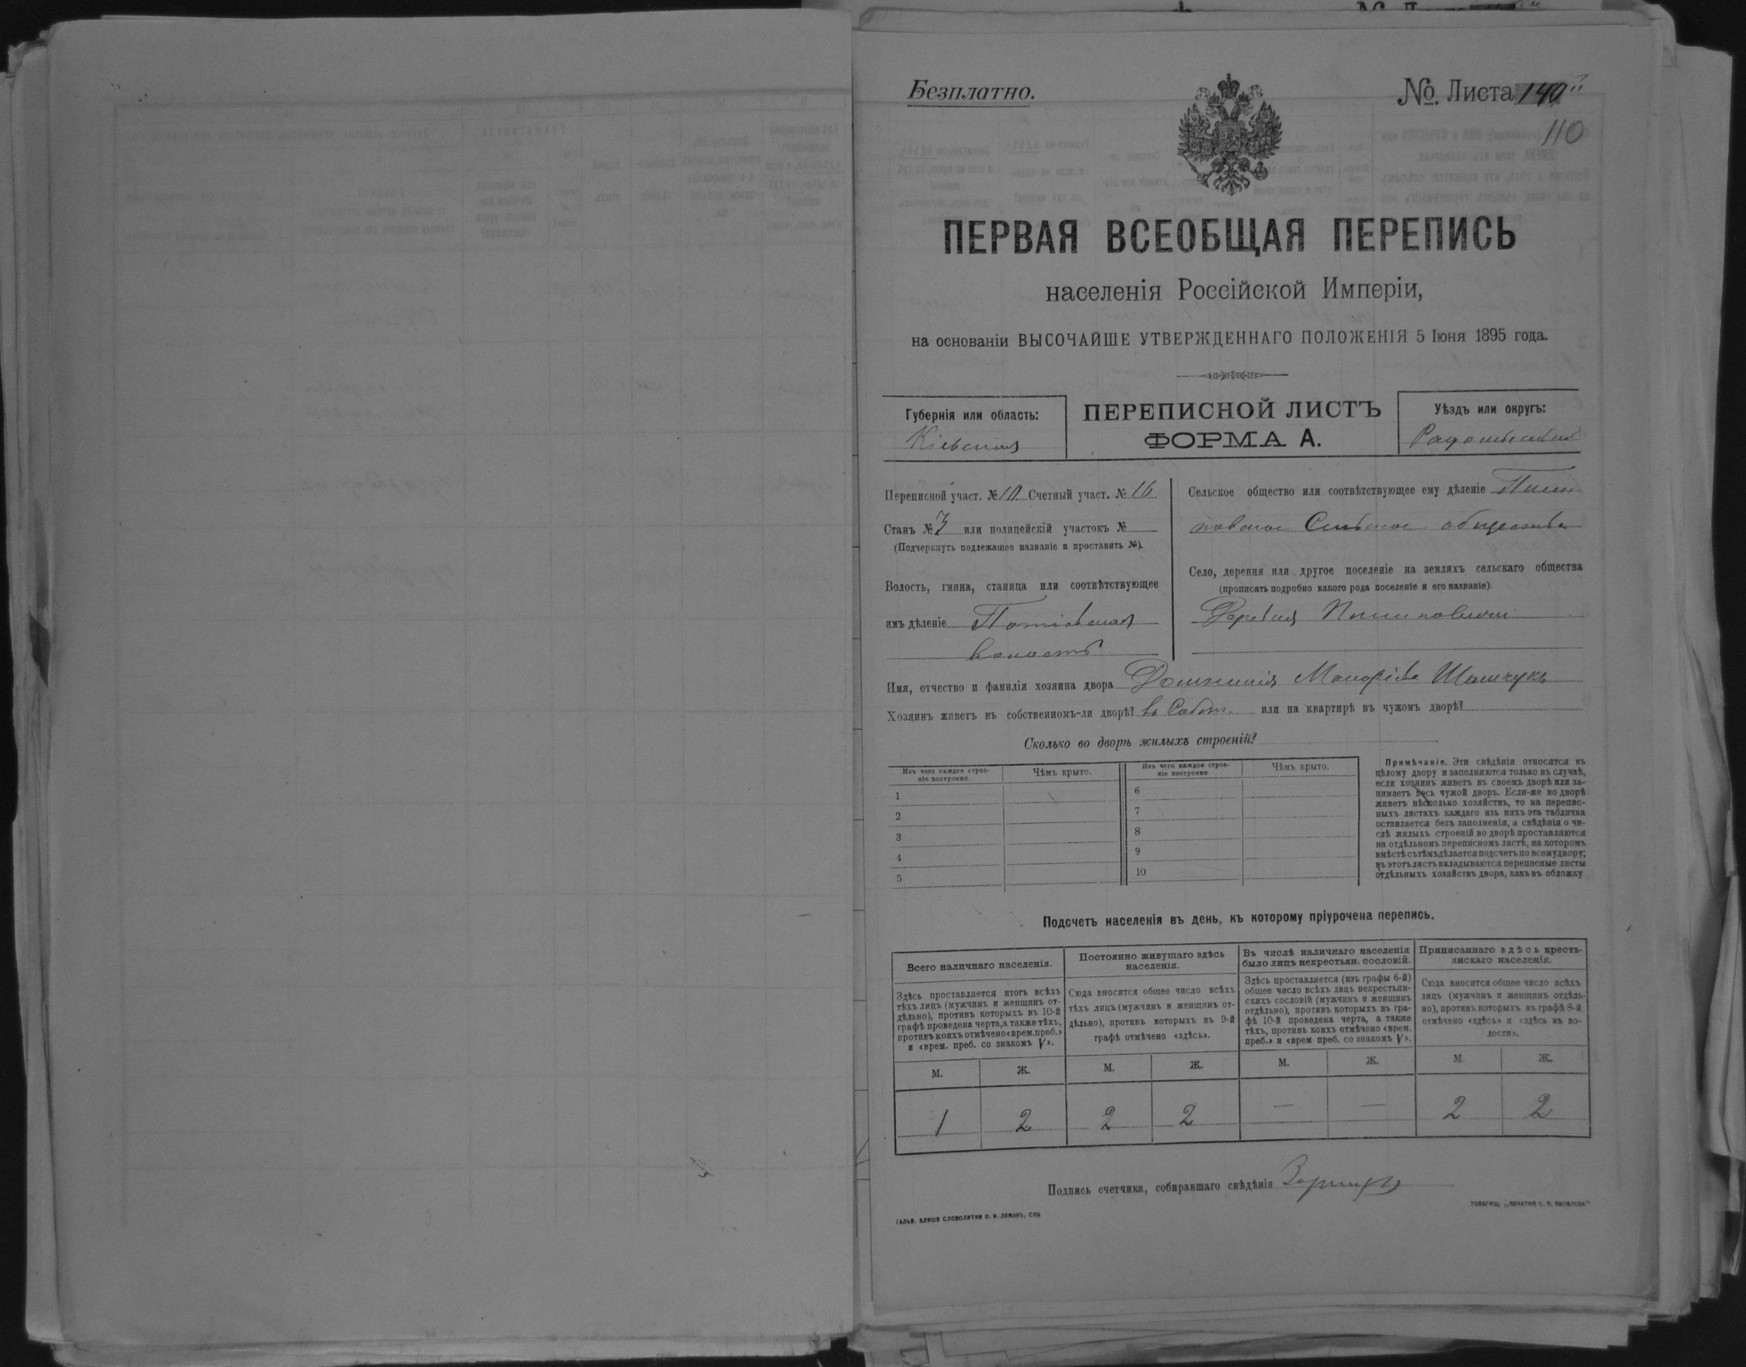 Безплатно.
№. Листа 140
110
ПЕРВАЯ ВСЕОБЩАЯ ПЕРЕПИСЬ
населенія Россійской Имперіи,
на основаніи ВЫСОЧАЙШЕ УТВЕРЖДЕННАГО ПОЛОЖЕНІЯ 5 Іюня 1895 года.
Губернія или область:
Кіевская
ПЕРЕПИСНОЙ ЛИСТЪ
ФОРМА А.
Уѣздъ или округъ:
Радомысльскій
Переписной участ. № 10 Счетный участ. № 16
Станъ № 3 или полицейскій участокъ №
(Подчеркнуть подлежащее названіе и проставить №).
Волость, гмина, станица или соотвѣтствующее
имъ дѣленіе
волость
Сельское общество или соотвѣтствующее ему дѣленіе
общество
Село, деревня или другое поселеніе на земляхъ сельскаго общества
(прописать подробно какого рода поселеніе и его названіе)
Деревня
Имя, отчество и фамилія хозяина двора
Хозяинъ живетъ въ собственномъ-ли дворѣ? въ Собст. или на квартирѣ въ чужомъ дворѣ?
Сколько во дворѣ жилыхъ строеній?
Изъ чего каждое строе-
ніе построено.
Чѣмъ крыто.
Изъ чего каждое строе-
ніе построено
Чѣмъ крыто.
1
2
3
4
5
6
7
8
9
10
Примѣчаніе. Эти свѣдѣнія относятся къ
цѣлому двору и заполняются только въ случаѣ,
если хозяинъ живетъ въ своемъ дворѣ или за-
нимаетъ весь чужой дворъ. Если-же во дворѣ
живетъ нѣсколько хозяйствъ, то на перепис-
ныхъ листахъ каждаго изъ нихъ эта табличка
оставляется безъ заполненія, а свѣдѣнія о чи-
слѣ жилыхъ строеній во дворѣ проставляются
на отдѣльномъ переписномъ листѣ, на которомъ
вмѣстѣ съ тѣмъ дѣлается подсчетъ по всему двору;
въ этотъ листъ вкладываются переписные листы
отдѣльныхъ хозяйствъ двора, какъ въ обложку
Подсчетъ населенія въ день, къ которому пріурочена перепись.
Всего наличнаго населенія.
Здѣсь проставляется итогъ всѣхъ
тѣхъ лицъ (мужчинъ и женщинъ от-
дѣльно), противъ которыхъ въ 10-й
графѣ проведена черта, а также тѣхъ,
противъ коихъ отмѣчено «врем. преб.»
и «врем. преб. со знакомъ V».
Постоянно живущаго здѣсь
населенія.
Сюда вносится общее число всѣхъ
тѣхъ лицъ (мужчинъ и женщинъ от-
дѣльно), противъ которыхъ въ 9-й
графѣ отмѣчено «здѣсь».
Въ числѣ наличнаго населенія
было лицъ некрестьян. сословій.
Здѣсь проставляется (изъ графы 6-й)
общее число всѣхъ лицъ некрестьян-
скихъ сословій (мужчинъ и женщинъ
отдѣльно), противъ которыхъ въ гра-
фѣ 10-й проведена черта, а также
тѣхъ, противъ коихъ отмѣчено «врем.
преб.» и «врем преб. со знакомъ V».
Приписаннаго здѣсь кресть-
янскаго населенія.
Сюда вносится общее число всѣхъ
лицъ (мужчинъ и женщинъ отдѣль-
но), противъ которыхъ въ графѣ 8-й
отмѣчено «здѣсь» и «здѣсь въ во-
лости».
М. Ж. М. Ж. М. Ж. М. Ж.
1 2 2 2 — — 2 2
Подпись счетчика, собиравшаго свѣдѣнія
ГАЛЬВ. КЛИШЕ СЛОВОЛИТНИ О. И. ЛЕМАНЪ, СПБ
ТОВАРИЩ. „ПЕЧАТНЯ С. П. ЯКОВЛЕВА"